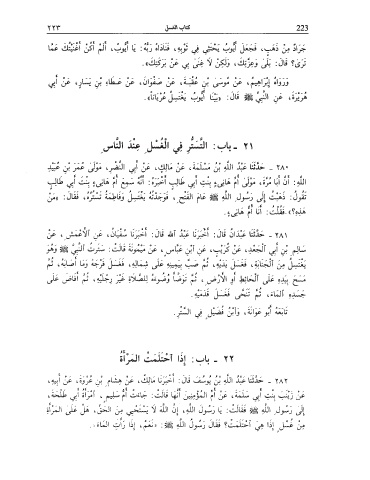 ٢٢٣ كتاب الغسل 223
جَرَادٌ مِنْ ذَهَبٍ، فَجَعَلَ أَيُّوبُ يَحْتَثِي فِي ثَوْبِهِ، فَنَادَاهُ رَبُّهُ: يَا أَيُّوبُ، أَلَمْ أَكُنْ أَغْنَيْتُكَ عَمَّا
تَرَى؟ قَالَ: بَلَى وَعِزَّتِكَ، وَلَكِنْ لَا غِنَى بِي عَنْ بَرَكَتِكَ».
وَرَوَاهُ إِبْرَاهِيمُ، عَنْ مُوسَى بْنِ عُقْبَةَ، عَنْ صَفْوَانَ، عَنْ عَطَاءِ بْنِ يَسَارٍ، عَنْ أَبِي
هُرَيْرَةَ، عَنِ النَّبِيِّ ﷺ قَالَ: «بَيْنَا أَيُّوبُ يَغْتَسِلُ عُرْيَانًا».
٢١ - باب: التَّسَتُّرِ فِي الْغُسْلِ عِنْدَ النَّاسِ
٢٨٠ - حَدَّثَنَا عَبْدُ اللَّهِ بْنُ مَسْلَمَةَ، عَنْ مَالِكٍ، عَنْ أَبِي النَّضْرِ، مَوْلَى عُمَرَ بْنِ عُبَيْدِ
اللَّهِ: أَنَّ أَبَا مُرَّةَ، مَوْلَى أُمِّ هَانِىءٍ بِنْتِ أَبِي طَالِبٍ أَخْبَرَهُ: أَنَّهُ سَمِعَ أُمَّ هَانِىءٍ بِنْتَ أَبِي طَالِبٍ
تَقُولُ: ذَهَبْتُ إِلَى رَسُولِ اللَّهِ ﷺ عَامَ الْفَتْحِ، فَوَجَدْتُهُ يَغْتَسِلُ وَفَاطِمَةُ تَسْتُرُهُ، فَقَالَ: «مَنْ
هَذِهِ؟». فَقُلْتُ: أَنَا أُمُّ هَانِىءٍ.
٢٨١ - حَدَّثَنَا عَبْدَانُ قَالَ: أَخْبَرَنَا عَبْدُ اللَّهِ قَالَ: أَخْبَرَنَا سُفْيَانُ، عَنِ الْأَعْمَشِ، عَنْ
سَالِمِ بْنِ أَبِي الْجَعْدِ، عَنْ كُرَيْبٍ، عَنِ ابْنِ عَبَّاسٍ، عَنْ مَيْمُونَةَ قَالَتْ: سَتَرْتُ النَّبِيَّ ﷺ وَهُوَ
يَغْتَسِلُ مِنَ الْجَنَابَةِ، فَغَسَلَ يَدَيْهِ، ثُمَّ صَبَّ بِيَمِينِهِ عَلَى شِمَالِهِ، فَغَسَلَ فَرْجَهُ وَمَا أَصَابَهُ، ثُمَّ
مَسَحَ بِيَدِهِ عَلَى الْحَائِطِ أَوِ الْأَرْضِ، ثُمَّ تَوَضَّأَ وُضُوءَهُ لِلصَّلَاةِ غَيْرَ رِجْلَيْهِ، ثُمَّ أَفَاضَ عَلَى
جَسَدِهِ الْمَاءَ، ثُمَّ تَنَحَّى فَغَسَلَ قَدَمَيْهِ.
تَابَعَهُ أَبُو عَوَانَةَ، وَابْنُ فُضَيْلٍ فِي السَّتْرِ.
٢٢ - باب: إِذَا احْتَلَمَتِ الْمَرْأَةُ
٢٨٢ - حَدَّثَنَا عَبْدُ اللَّهِ بْنُ يُوسُفَ قَالَ: أَخْبَرَنَا مَالِكٌ، عَنْ هِشَامِ بْنِ عُرْوَةَ، عَنْ أَبِيهِ،
عَنْ زَيْنَبَ بِنْتِ أَبِي سَلَمَةَ، عَنْ أُمِّ الْمُؤْمِنِينَ أَنَّهَا قَالَتْ: جَاءَتْ أُمُّ سُلَيْمٍ، امْرَأَةُ أَبِي طَلْحَةَ،
إِلَى رَسُولِ اللَّهِ ﷺ فَقَالَتْ: يَا رَسُولَ اللَّهِ، إِنَّ اللَّهَ لَا يَسْتَحْيِي مِنَ الْحَقِّ، هَلْ عَلَى الْمَرْأَةِ
مِنْ غُسْلٍ إِذَا هِيَ احْتَلَمَتْ؟ فَقَالَ رَسُولُ اللَّهِ ﷺ: «نَعَمْ، إِذَا رَأَتِ الْمَاءَ».